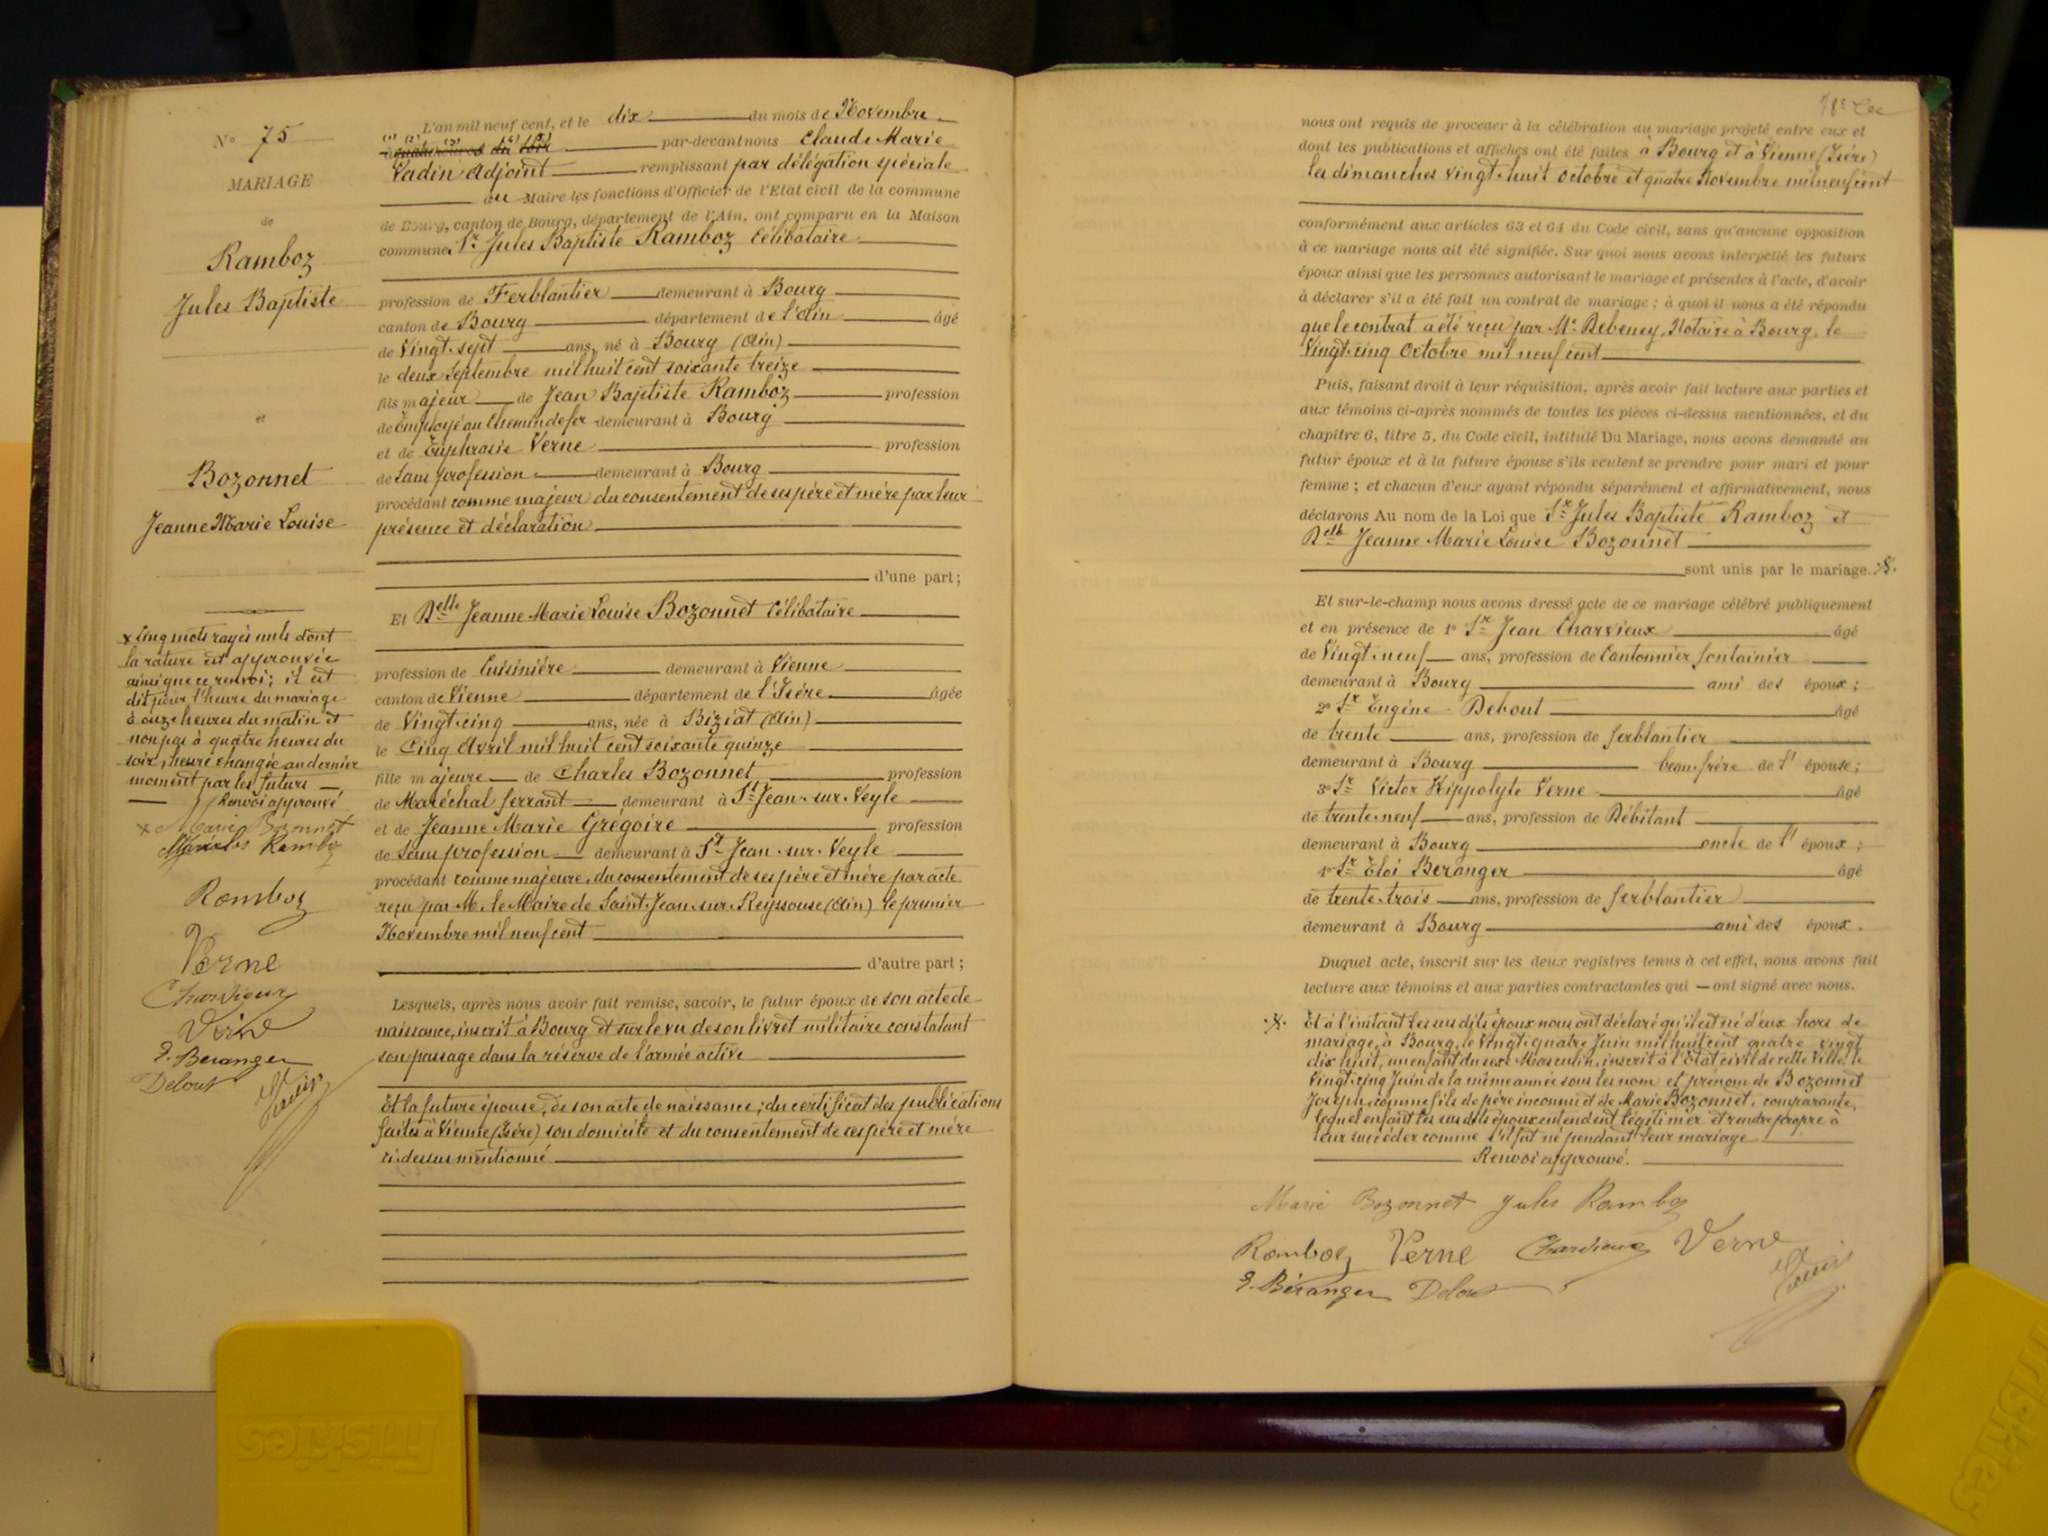 N° 75
MARIAGE
de
Ramboz
Jules Baptiste
et
Bozonnet
Jeanne Marie Louise
x Cinq mots rayés nuls dont
la rature est approuvée
ainsi que ce renvoi; il est
dit pour l'heure du mariage
à onze heures du matin et
non pas à quatre heures du
soir, heure changée au dernier
moment par les futurs
Renvoi approuvé
x Marie Bozonnet
Ramboz
Ramboz
Verne
Charvieux
Verne
E. Béranger
Debout
L'an mil neuf cent, et le dix du mois de Novembre
à quatre heures du soir par-devant nous Claude Marie
Vadin Adjoint remplissant par délégation spéciale
du Maire les fonctions d'Officier de l'Etat civil de la commune
de Bourg, canton de Bourg, département de l'Ain, ont comparu en la Maison
commune Sr Jules Baptiste Ramboz Célibataire
profession de Ferblantier demeurant à Bourg
canton de Bourg département de l'Ain âgé
de Vingt-sept ans, né à Bourg (Ain)
le deux Septembre mil huit cent soixante treize
fils majeur de Jean Baptiste Ramboz profession
de Employé au Chemin de fer demeurant à Bourg
et de Euphrosie Verne profession
de Sans profession demeurant à Bourg
procédant comme majeur du consentement de ses père et mère par leur
présence et déclaration
d'une part;
Et Delle Jeanne Marie Louise Bozonnet Célibataire
profession de Cuisinière demeurant à Vienne
canton de Vienne département de l'Isère âgée
de Vingt-cinq ans, née à Biziat (Ain)
le Cinq Avril mil huit cent soixante quinze
fille majeure de Charles Bozonnet profession
de Maréchal ferrant demeurant à St Jean-sur-Veyle
et de Jeanne Marie Grégoire profession
de Sans profession demeurant à St Jean-sur-Veyle
procédant comme majeure, du consentement de ses père et mère par acte
reçu par M. le Maire de Saint-Jean-sur-Reyssouse (Ain) le premier
Novembre mil neuf cent
d'autre part;
Lesquels, après nous avoir fait remise, savoir, le futur époux de son acte de
naissance, inscrit à Bourg et sur le vu de son livret militaire constatant
son passage dans la réserve de l'armée active
Et la future épouse, de son acte de naissance; du certificat des publications
faites à Vienne (Isère) son domicile et du consentement de ses père et mère
ci-dessus mentionné
nous ont requis de procéder à la célébration du mariage projeté entre eux et
dont les publications et affiches ont été faites à Bourg et à Vienne (Isère)
les dimanches vingt-huit Octobre et quatre Novembre mil neuf cent
conformément aux articles 63 et 64 du Code civil, sans qu'aucune opposition
à ce mariage nous ait été signifiée. Sur quoi nous avons interpellé les futurs
époux ainsi que les personnes autorisant le mariage et présentes à l'acte, d'avoir
à déclarer s'il a été fait un contrat de mariage; à quoi il nous a été répondu
que le contrat a été reçu par Me Debeney, Notaire à Bourg, le
Vingt-cinq Octobre mil neuf cent
Puis, faisant droit à leur réquisition, après avoir fait lecture aux parties et
aux témoins ci-après nommés de toutes les pièces ci-dessus mentionnées, et du
chapitre 6, titre 5, du Code civil, intitulé Du Mariage, nous avons demandé au
futur époux et à la future épouse s'ils veulent se prendre pour mari et pour
femme; et chacun d'eux ayant répondu séparément et affirmativement, nous
déclarons Au nom de la Loi que Sr Jules Baptiste Ramboz et
Delle Jeanne Marie Louise Bozonnet
sont unis par le mariage.
Et sur-le-champ nous avons dressé acte de ce mariage célébré publiquement
et en présence de 1° Sr Jean Charvieux âgé
de Vingt-neuf ans, profession de Cantonnier fontainier
demeurant à Bourg ami des époux;
2° Sr Eugène Debout âgé
de trente ans, profession de ferblantier
demeurant à Bourg beau-frère de l'épouse;
3° Sr Victor Hippolyte Verne âgé
de trente-neuf ans, profession de Débitant
demeurant à Bourg oncle de l'époux;
4° Sr Eloi Béranger âgé
de trente-trois ans, profession de ferblantier
demeurant à Bourg ami des époux.
Duquel acte, inscrit sur les deux registres tenus à cet effet, nous avons fait
lecture aux témoins et aux parties contractantes qui — ont signé avec nous.
Et à l'instant les susdits époux nous ont déclaré qu'il est né d'eux hors de
mariage, à Bourg, le Vingt-quatre Juin mil huit cent quatre vingt
dix huit, un enfant du sexe Masculin, inscrit à l'Etat civil de cette Ville, le
Vingt-cinq Juin de la même année sous les nom et prénom de Bozonnet
Joseph, comme fils de père inconnu et de Marie Bozonnet, comparante,
lequel enfant les susdits époux entendent légitimer et rendre propre à
leur succéder comme s'il fût né pendant leur mariage
Renvoi approuvé.
Marie Bozonnet Jules Ramboz
Ramboz Verne Charvieux Verne
E. Béranger Debout
Friskies